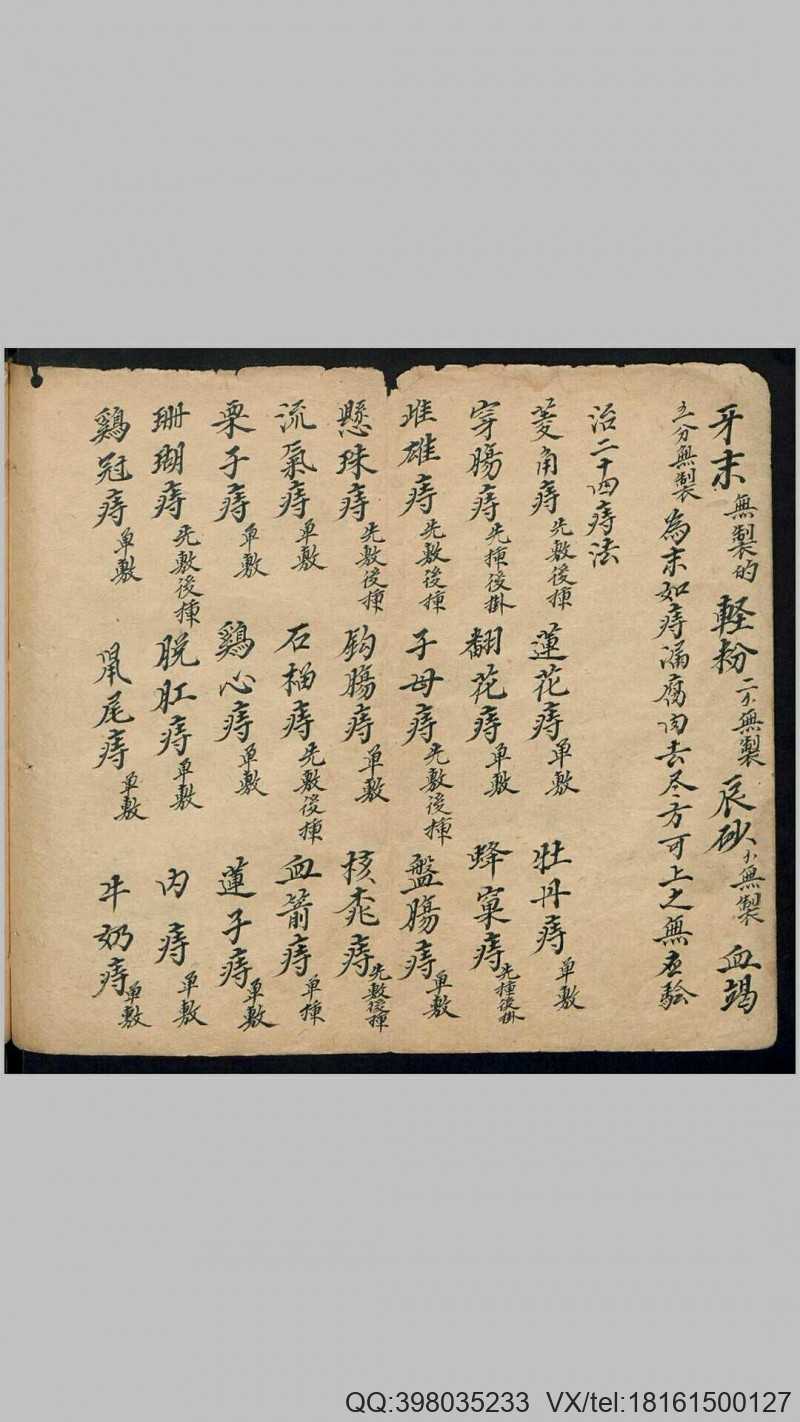 牙末無製的 輕粉二分無製 辰砂 無製 血竭
五分無製 為末如痔漏腐肉去尽方可上之無 驗
治二十四痔法
菱角痔先敷後揷 蓮花痔单敷 牡丹痔单敷
穿腸痔先揷後掛 翻花痔单敷 蜂窠痔先揷後掛
雌雄痔先敷後揷 子母痔先敷後揷 盤腸痔单敷
懸珠痔先敷後揷 鈎腸痔单敷 核痔先敷後揷
流氣痔单敷 石榴痔先敷後揷 血箭痔单揷
栗子痔单敷 鷄心痔单敷 蓮子痔单敷
珊瑚痔先敷後揷 脱肛痔单敷 内痔单敷
鷄冠痔单敷 鼠尾痔单敷 牛奶痔单敷
QQ:398035233 VX/tel:18161500127